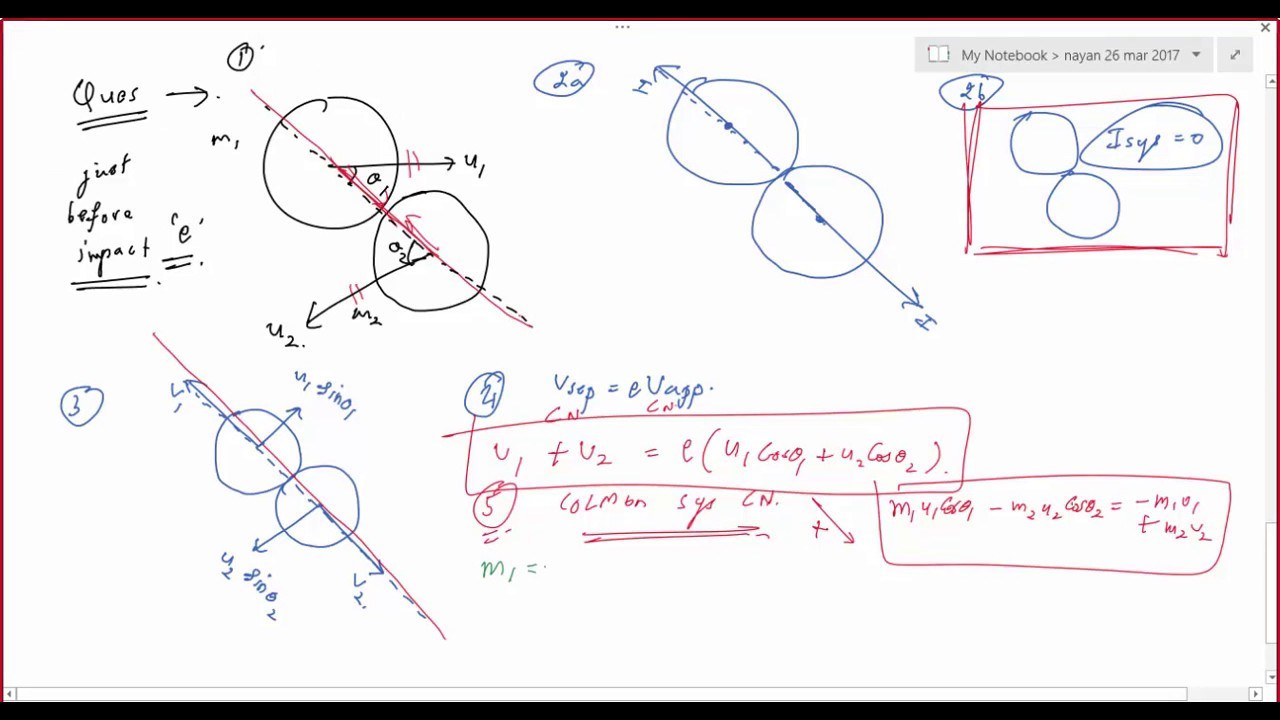 My Notebook > nayan 26 mar 2017
Ques →
just
before
impact
'e'
1
m1
u1
θ1
θ2
m2
u2.
2a
I
I
2b
Isys = 0
3
V1
u1 sinθ1
u2 sinθ2
V2.
4
Vsep = e Vapp.
CN CN
v1 + v2 = e(u1 Cosθ1 + u2 Cosθ2).
5
COLM on sys CN.
+
m1u1Cosθ1 − m2u2Cosθ2 = −m1v1
+ m2v2
m1 =